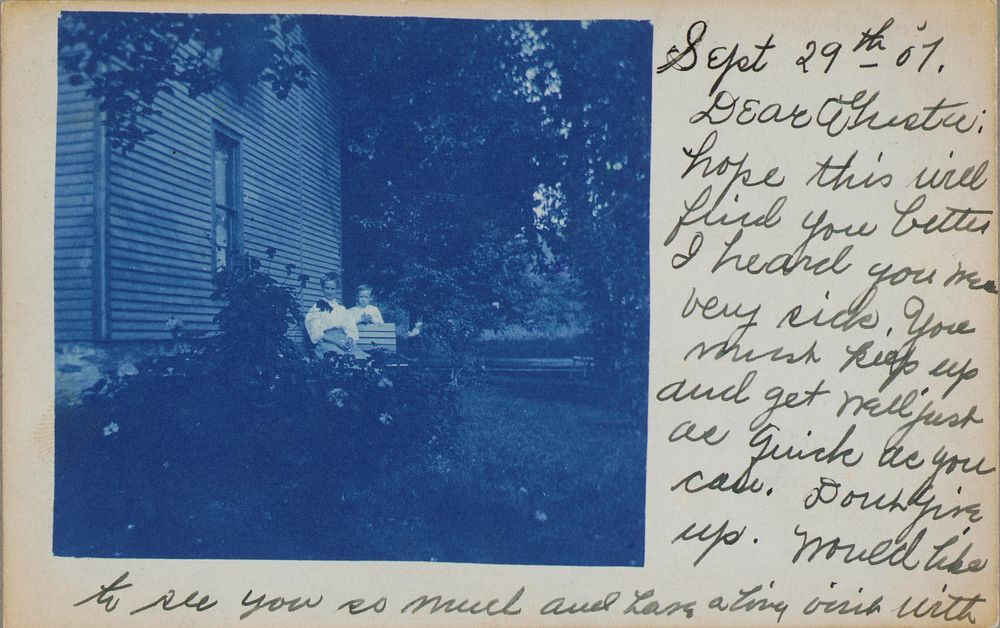 Sept 29th 07.
Dear
hope this will
find you better
I heard you was
very sick. You
must keep up
and get well just
as quick as you
can. Dont give
up. Would like
to see you so much and have a long visit with